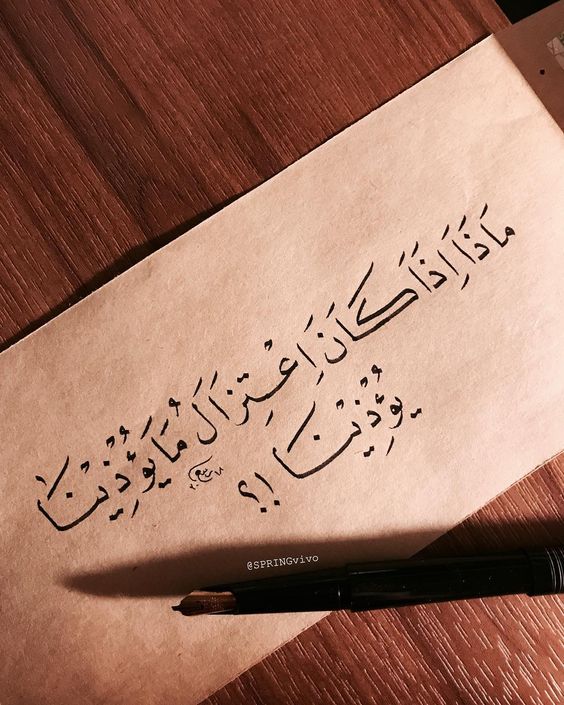 مَاذَا اِذَا كَانَ اِعْتِزَالَ مَا يُؤْذِيْنَا
يُؤْذِيْنَا !؟
@SPRINGvivo